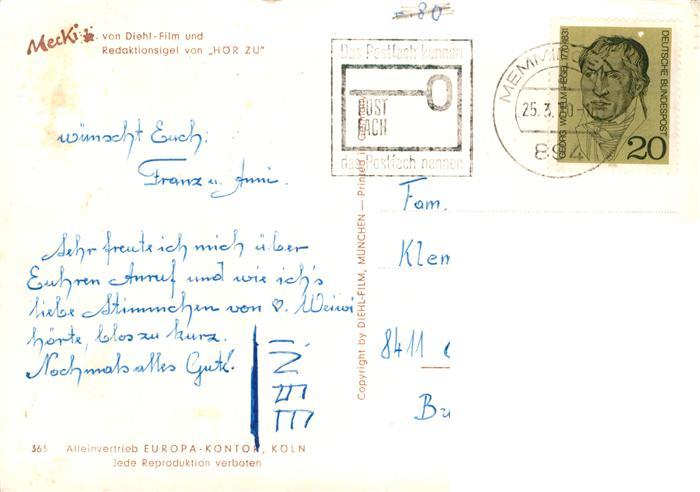 = 80
Mecki von Diehl-Film und
Redaktionsigel von „HÖR ZU"
Das Postfach kennen
POST
FACH
das Postfach nennen
MEMMI
25.3.
894
DEUTSCHE BUNDESPOST
GEORG WILHELM HEGEL 1770-1831
20
wünscht Euch.
Franz u. Anni.
Sehr freute ich mich über
Euhren Anruf und wie ich's
liebe Stimmchen von ♡. Weiwi
hörte, blos zu kurz.
Nochmals alles Gute!
Fam.
Klem
8411
Br
Copyright by DIEHL-FILM, MÜNCHEN — Printed in
363 Alleinvertrieb EUROPA-KONTOR, KÖLN
Jede Reproduktion verboten